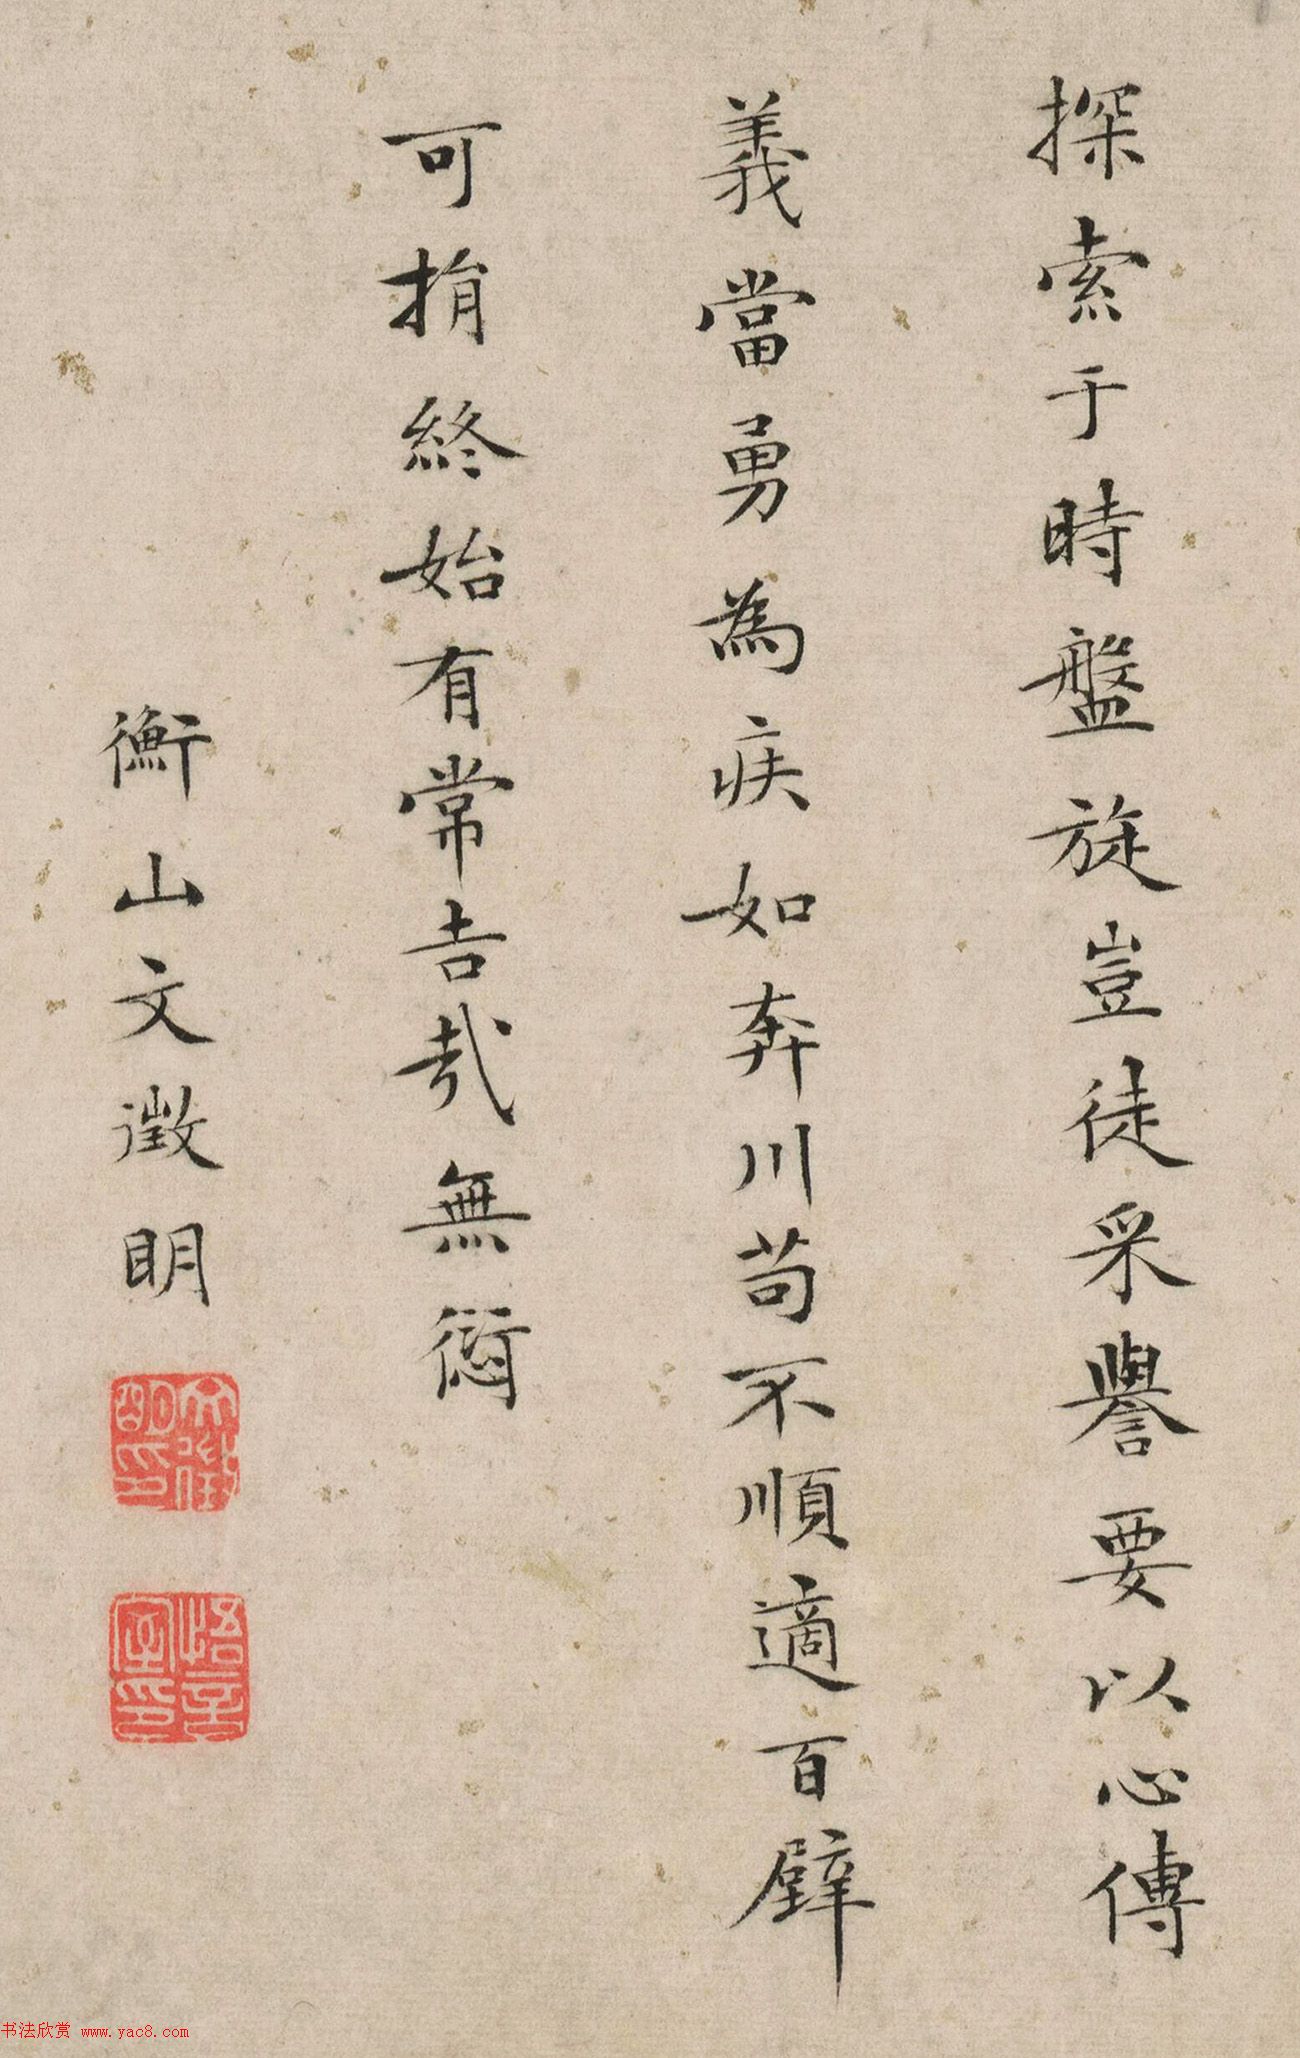 探索于時盤旋豈徒采譽要以心傳
義當勇為疾如奔川苟不順適百璧
可捐終始有常吉哉無愆
衡山文徵明
文徵明印
悟言室印
书法欣赏 www.yac8.com